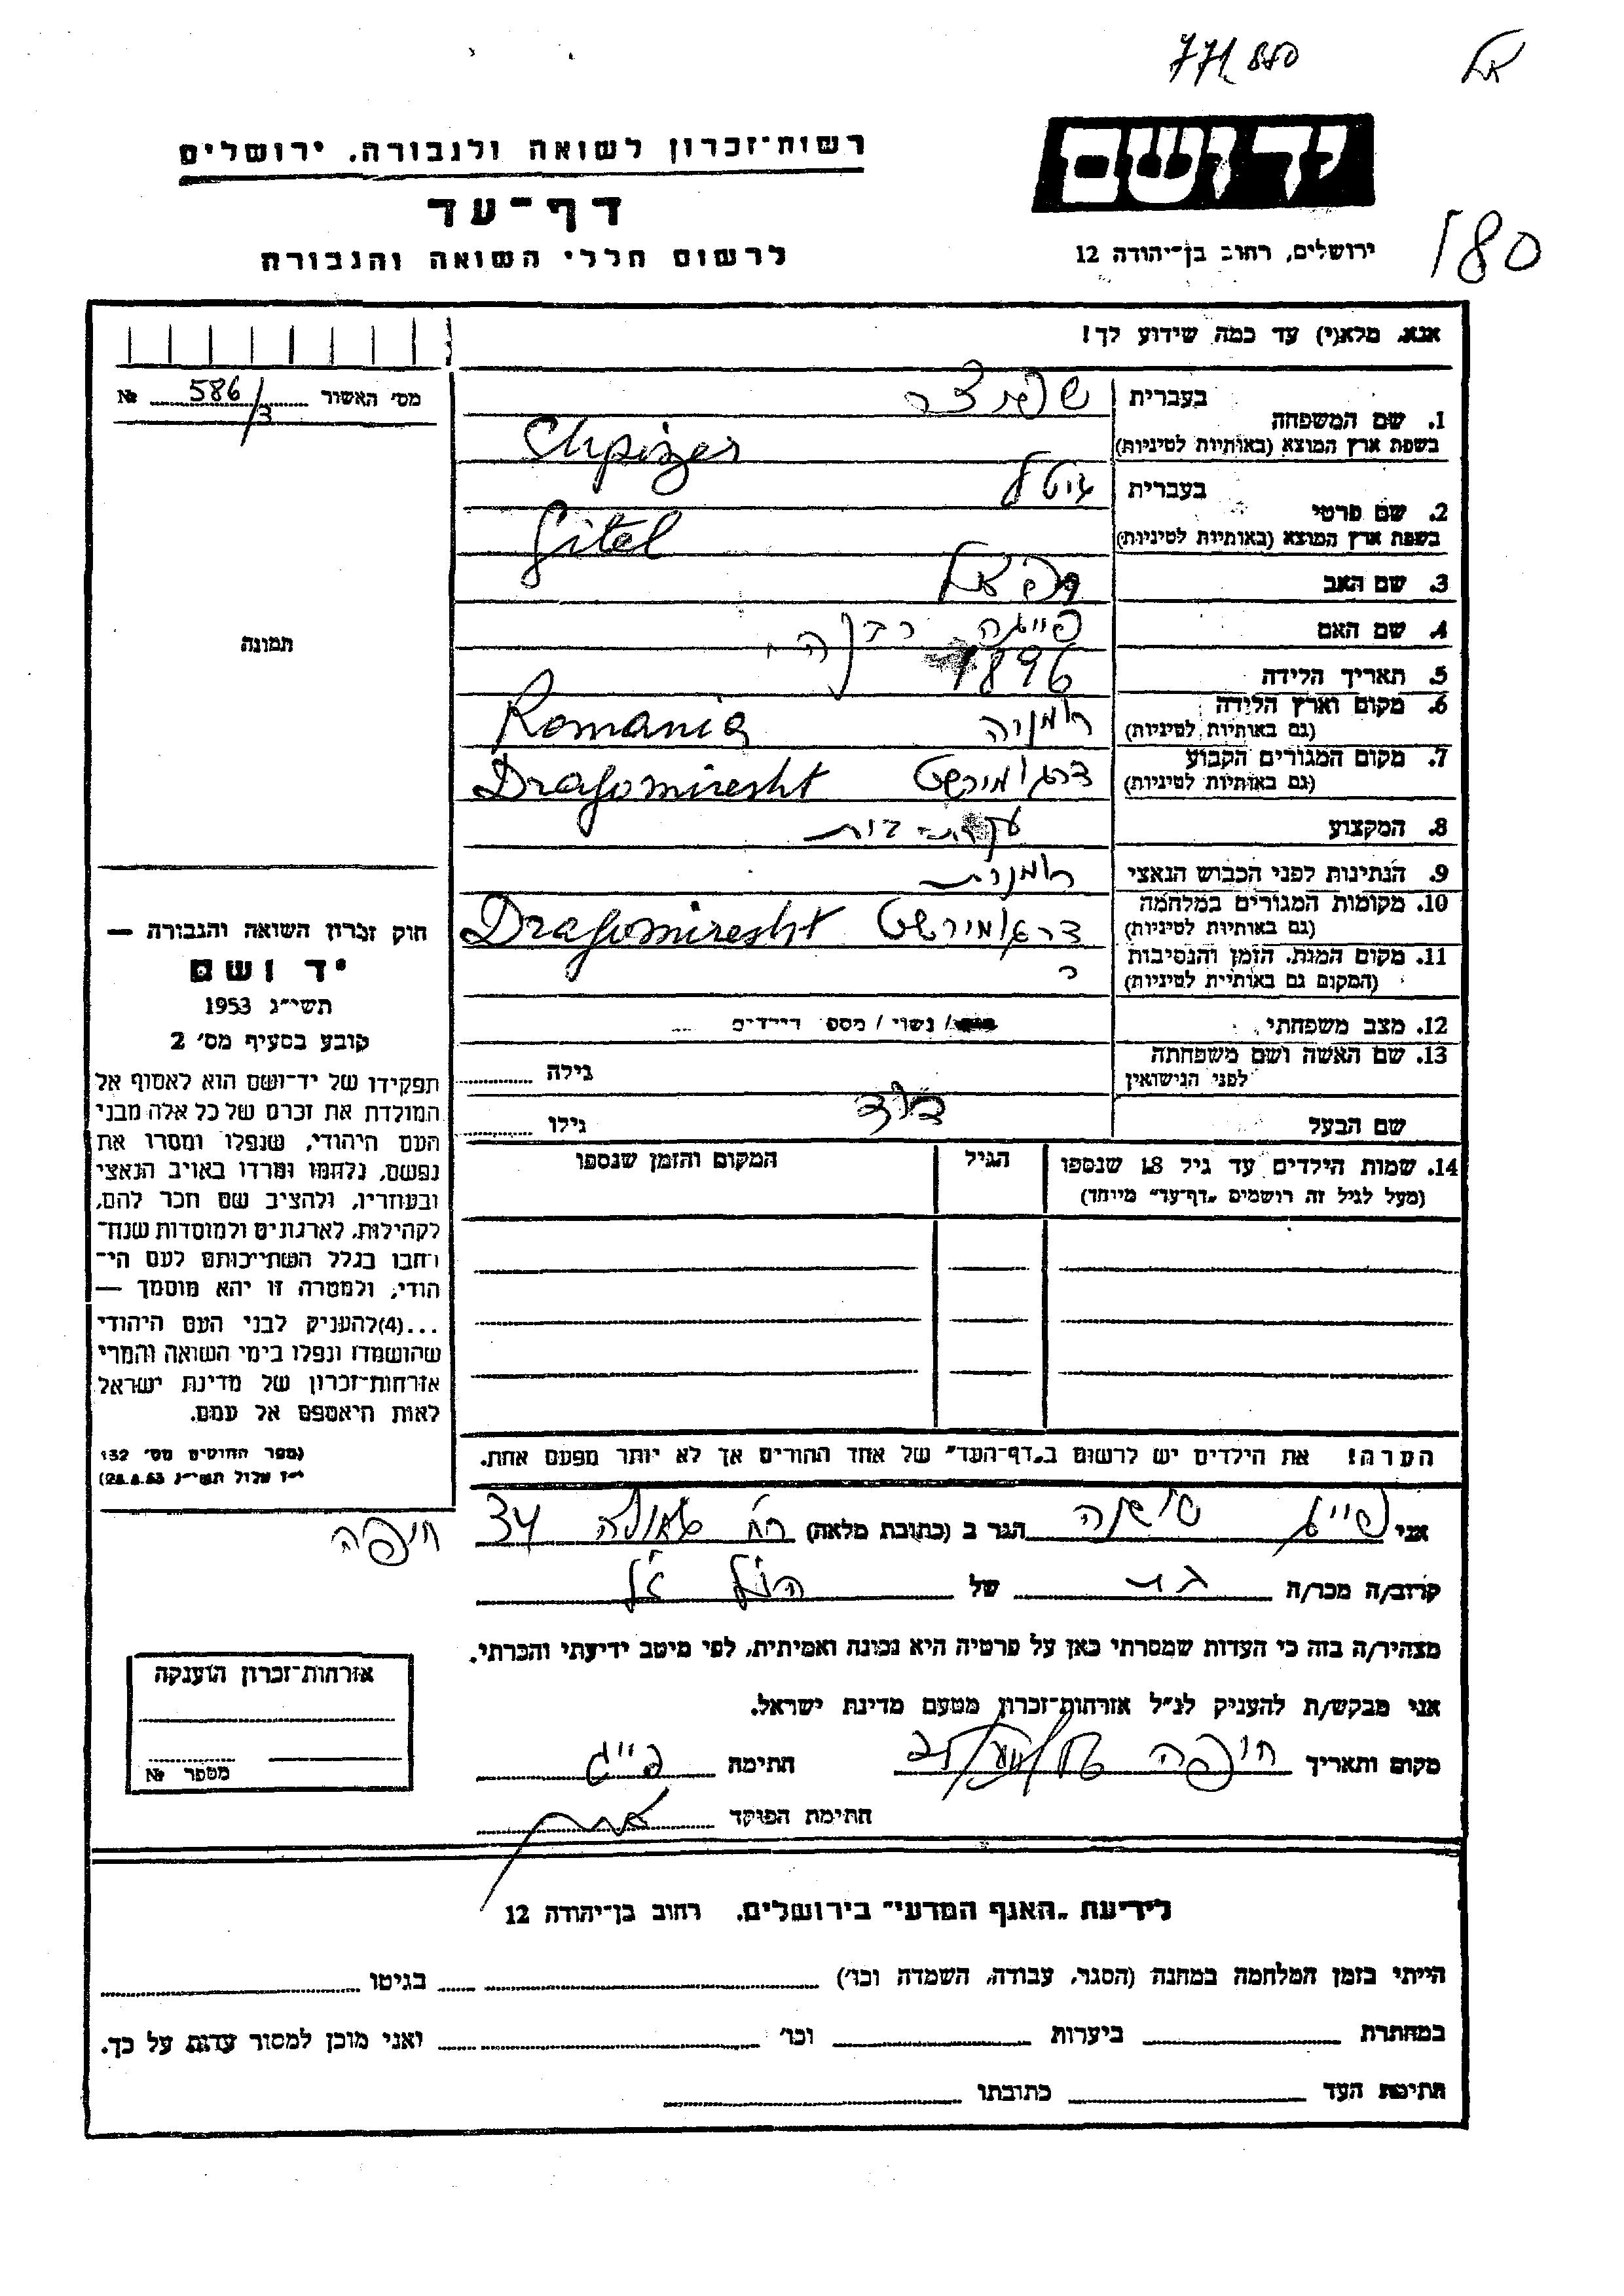 771880
180
יד ושם
ירושלים, רחוב בן־יהודה 12
רשות־זכרון לשואה ולגבורה, ירושלים
דף־עד
לרשום חללי השואה והגבורה
אנא, מלא(י) עד כמה שידוע לך!
מס' האשור 586/ №
1. שם המשפחה
בעברית שפיצר
בשפת ארץ המוצא (באותיות לטיניות) Chpizer
2. שם פרטי
בעברית גיטל
בשפת ארץ המוצא (באותיות לטיניות) Gitel
3. שם האב
4. שם האם פייגה
5. תאריך הלידה 1896
6. מקום וארץ הלידה
(גם באותיות לטיניות) רומניה Romania
7. מקום המגורים הקבוע
(גם באותיות לטיניות) דרגומירשט Dragomiresht
8. המקצוע עקרת בית
9. הנתינות לפני הכבוש הנאצי רומנית
10. מקומות המגורים במלחמה
(גם באותיות לטיניות) דראגומירשט Dragomiresht
11. מקום המות, הזמן והנסיבות
(המקום גם באותיות לטיניות)
12. מצב משפחתי / נשוי / מספר הילדים
13. שם האשה ושם משפחתה
לפני הנישואין
גילה
שם הבעל דוד גילו
14. שמות הילדים עד גיל 18 שנספו
(מעל לגיל זה רושמים "דף־עד" מיוחד)
הגיל
המקום והזמן שנספו
הערה! את הילדים יש לרשום ב"דף־העד" של אחד ההורים אך לא יותר מפעם אחת.
תמונה
חוק זכרון השואה והגבורה —
יד ושם
תשי"ג 1953
קובע בסעיף מס' 2
תפקידו של יד־ושם הוא לאסוף אל
המולדת את זכרם של כל אלה מבני
העם היהודי, שנפלו ומסרו את
נפשם, נלחמו ומרדו באויב הנאצי
ובעוזריו, ולהציב שם וזכר להם,
לקהילות, לארגונים ולמוסדות שנח־
רחבו בגלל השתייכותם לעם הי־
הודי; ולמטרה זו יהא מוסמך —
...(4)להעניק לבני העם היהודי
שהושמדו ונפלו בימי השואה והמרי
אזרחות־זכרון של מדינת ישראל
לאות היאספם אל עמם.
(ספר החוקים מס' 132
י"ז אלול תשי"ג 28.8.53)
אני פייג הגר ב (כתובת מלאה) רח' גאולה 34 חיפה
קרוב/ה מכר/ה בת של
מצהיר/ה בזה כי העדות שמסרתי כאן על פרטיה היא נכונה ואמיתית, לפי מיטב ידיעתי והכרתי.
אני מבקש/ת להעניק לנ"ל אזרחות־זכרון מטעם מדינת ישראל.
מקום ותאריך חיפה חתימה פייג
חתימת הפוקד
אזרחות־זכרון הוענקה
מספר №
לידיעת "האגף המדעי" בירושלים, רחוב בן־יהודה 12
הייתי בזמן המלחמה במחנה (הסגר, עבודה, השמדה וכו') בגיטו
במחתרת ביערות וכו' ואני מוכן למסור עדות על כך.
חתימת העד כתובתו